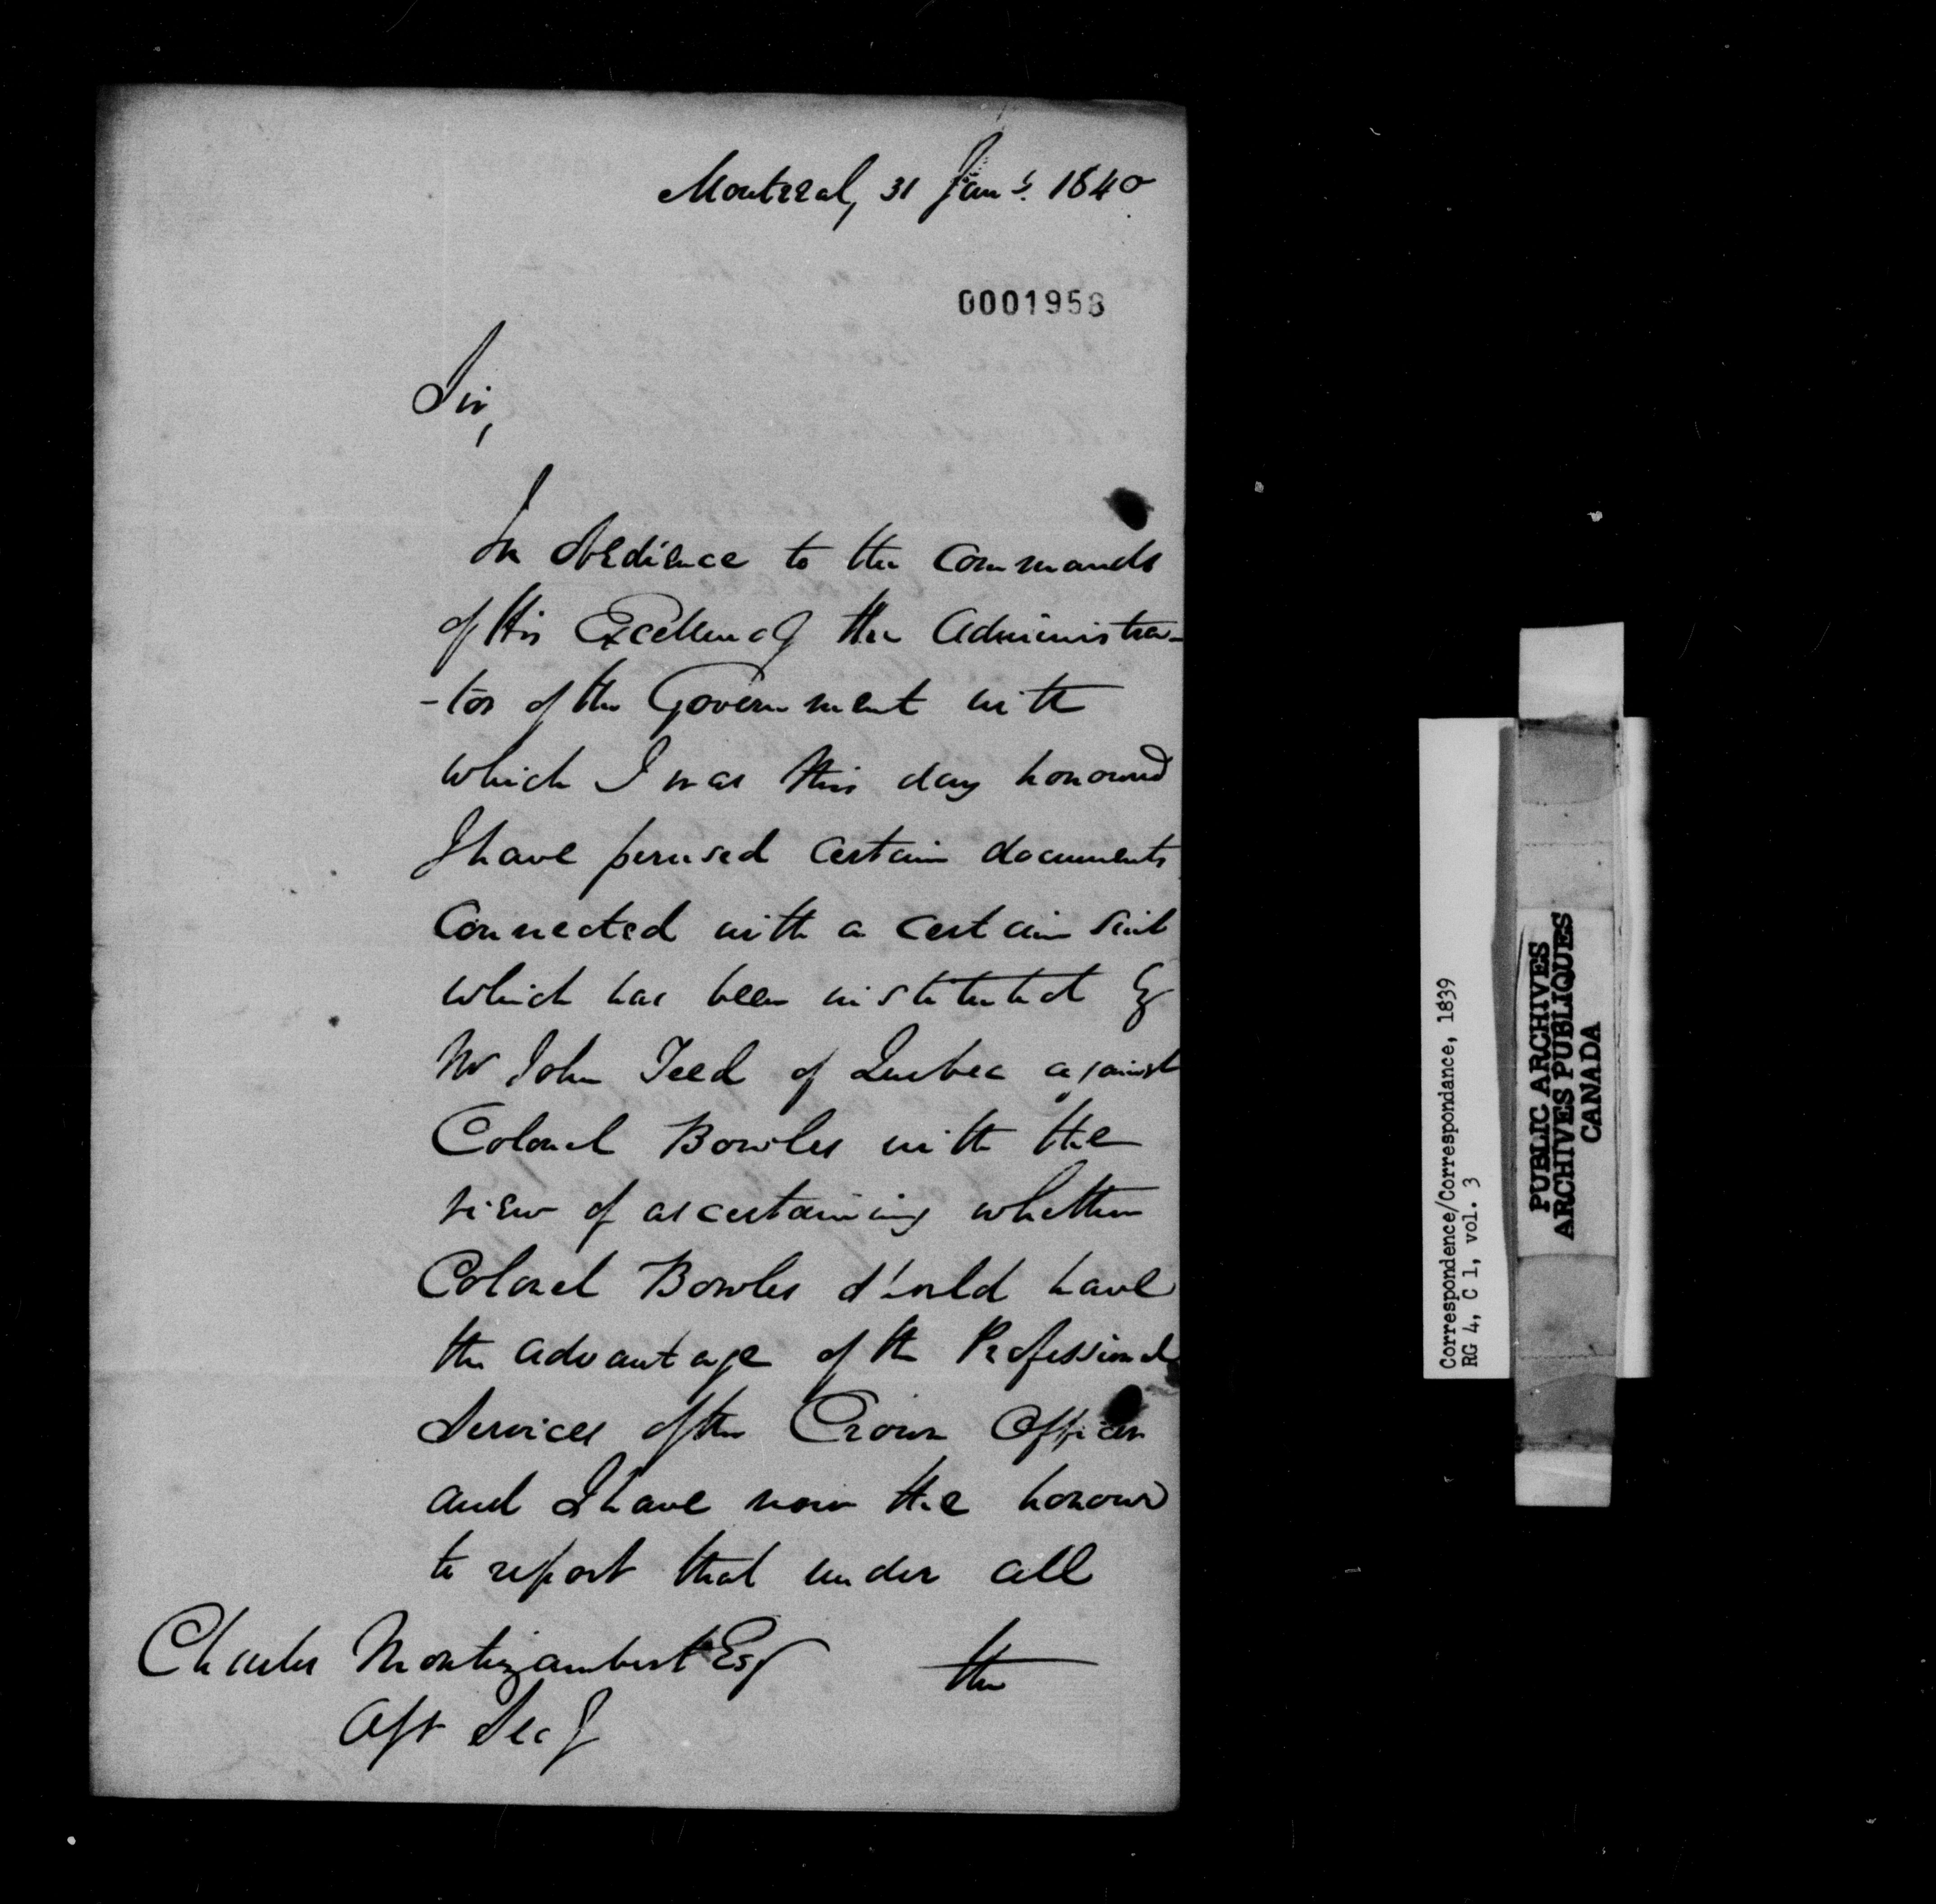 Montreal, 31 Jany. 1840
0001958
Sir,
In Obedience to the Commands
of His Excellency the Administra-
-tor of the Government with
which I was this day honoured
I have perused certain documents
Connected with a certain Suit
which has been instituted by
Mr John Teed of Quebec against
Colonel Bowles with the
view of ascertaining whether
Colonel Bowles should have
the advantage of the Professional
Services of the Crown Officers
and I have now the honour
to report that under all
the
Charles Montizambert Esq
Asst Secy
Correspondence/Correspondance, 1839
RG 4, C 1, vol. 3
PUBLIC ARCHIVES
ARCHIVES PUBLIQUES
CANADA